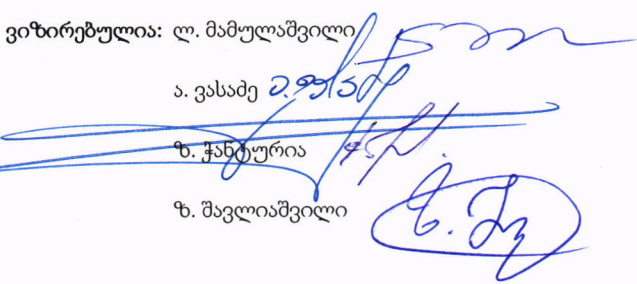 ვიზირებულია: ლ. მამულაშვილი
ა. ვასაძე
ზ. ჭანტურია
ზ. შავლიაშვილი